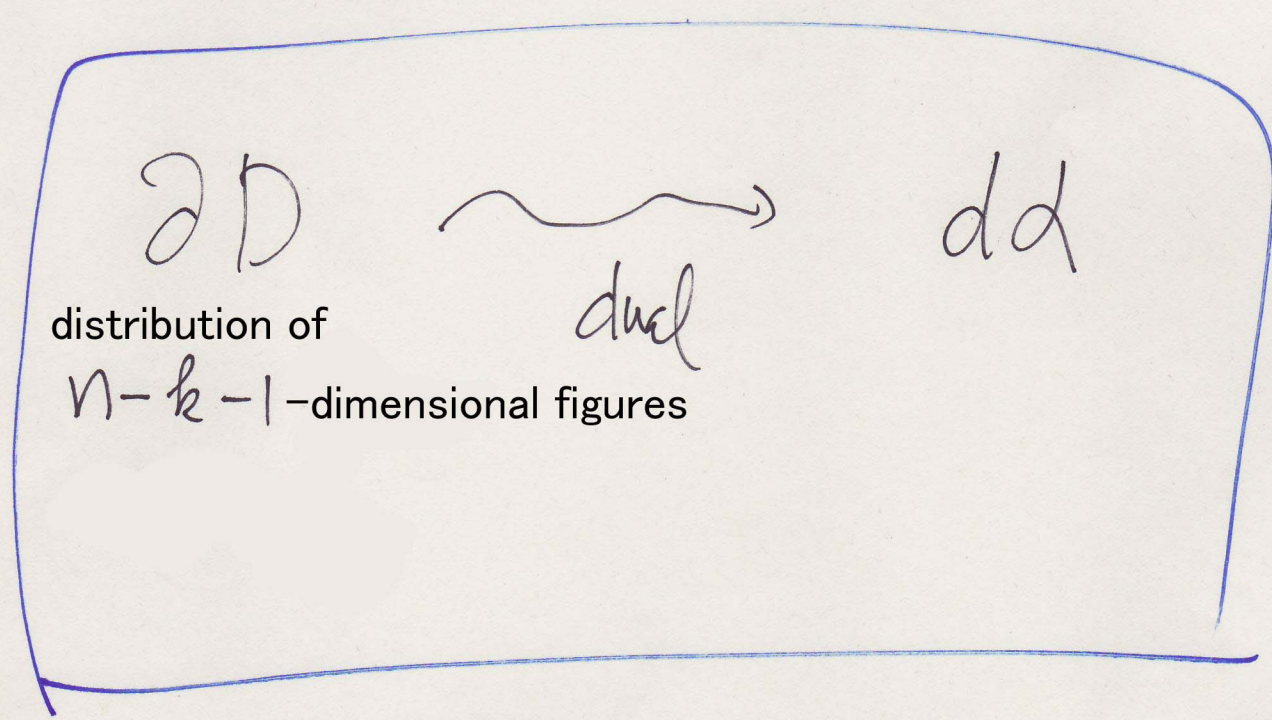 ∂D dα
dual
distribution of
n-k-1-dimensional figures